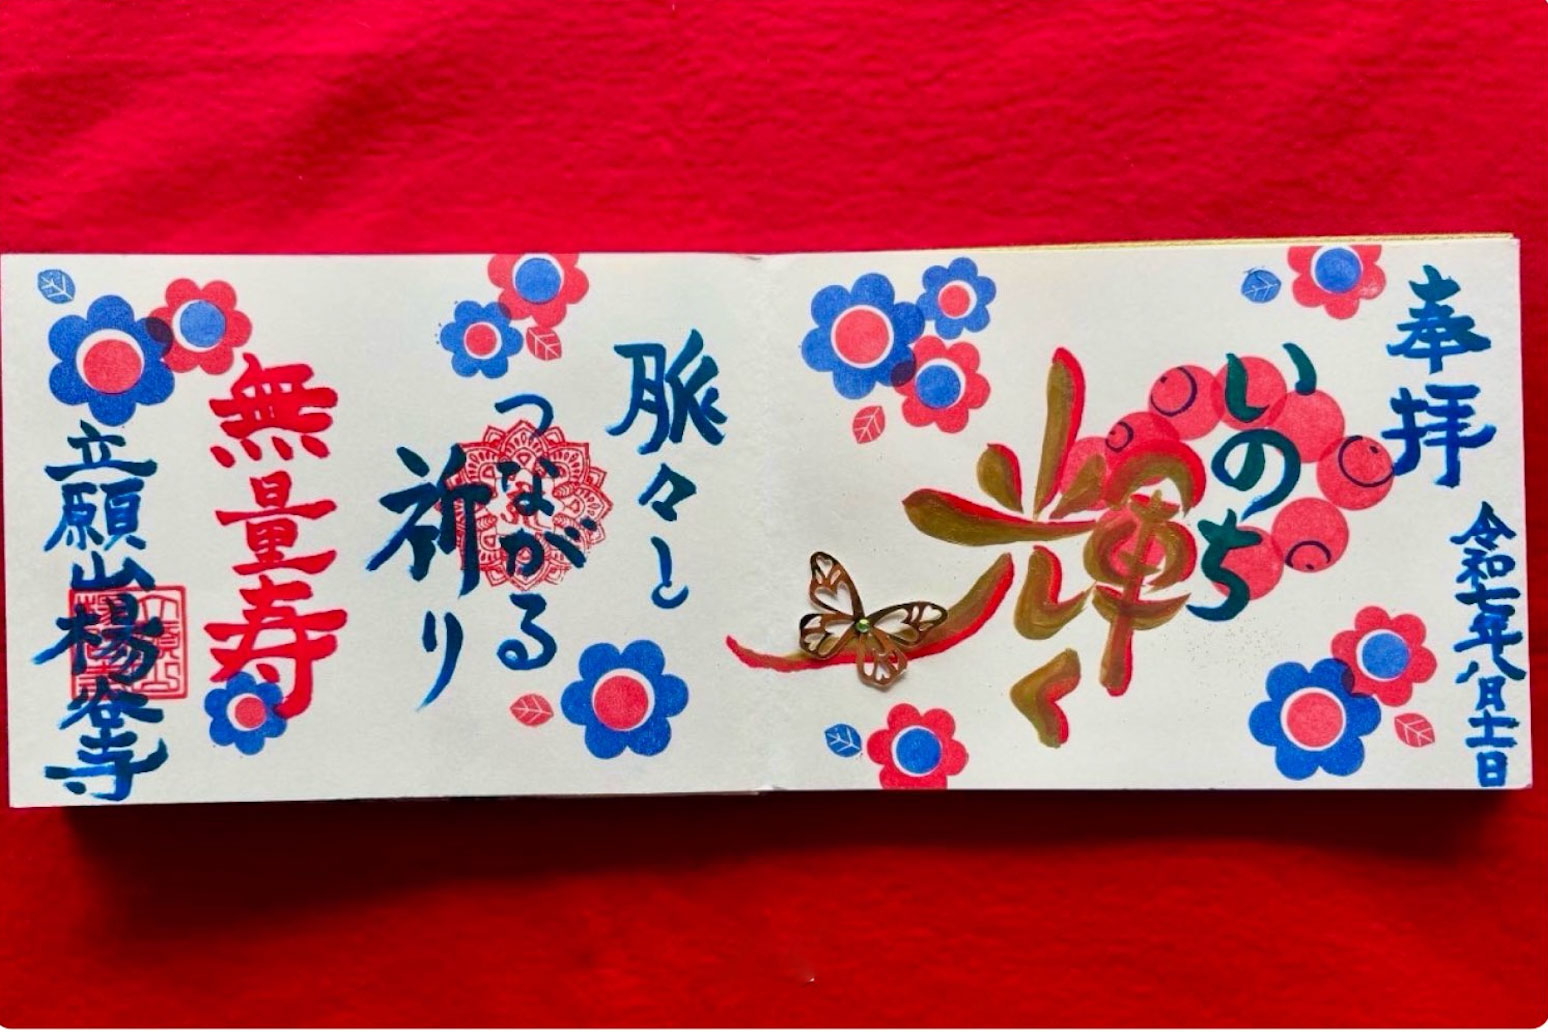 奉拝
令和七年八月十一日
いのち
輝く
脈々と
つながる
祈り
無量寿
立願山楊谷寺